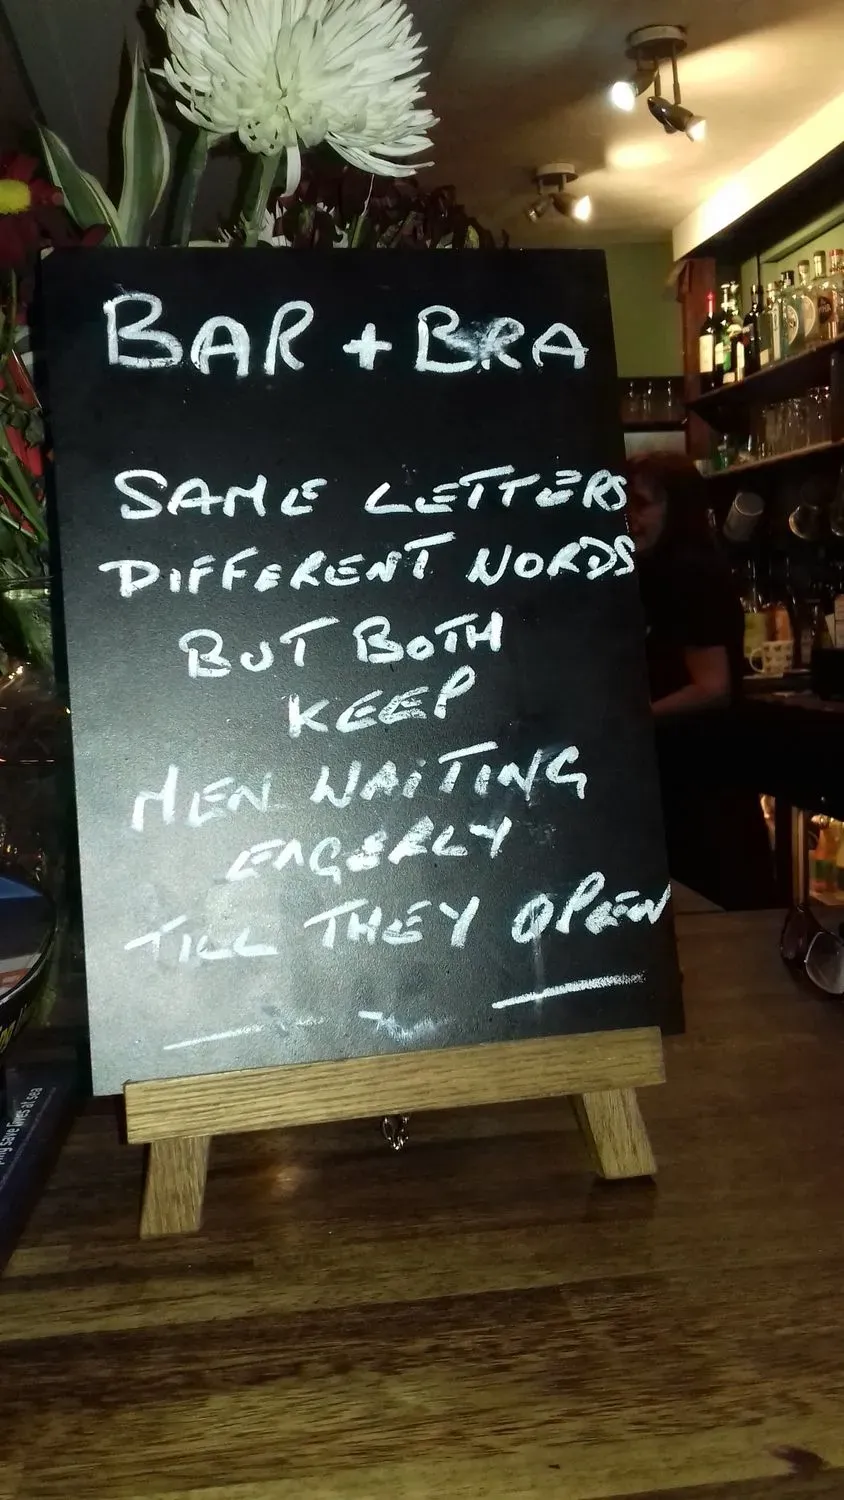 BAR + BRA
SAME LETTERS
DIFFERENT WORDS
BUT BOTH
KEEP
MEN WAITING
EAGERLY
TILL THEY OPEN
save lives at sea